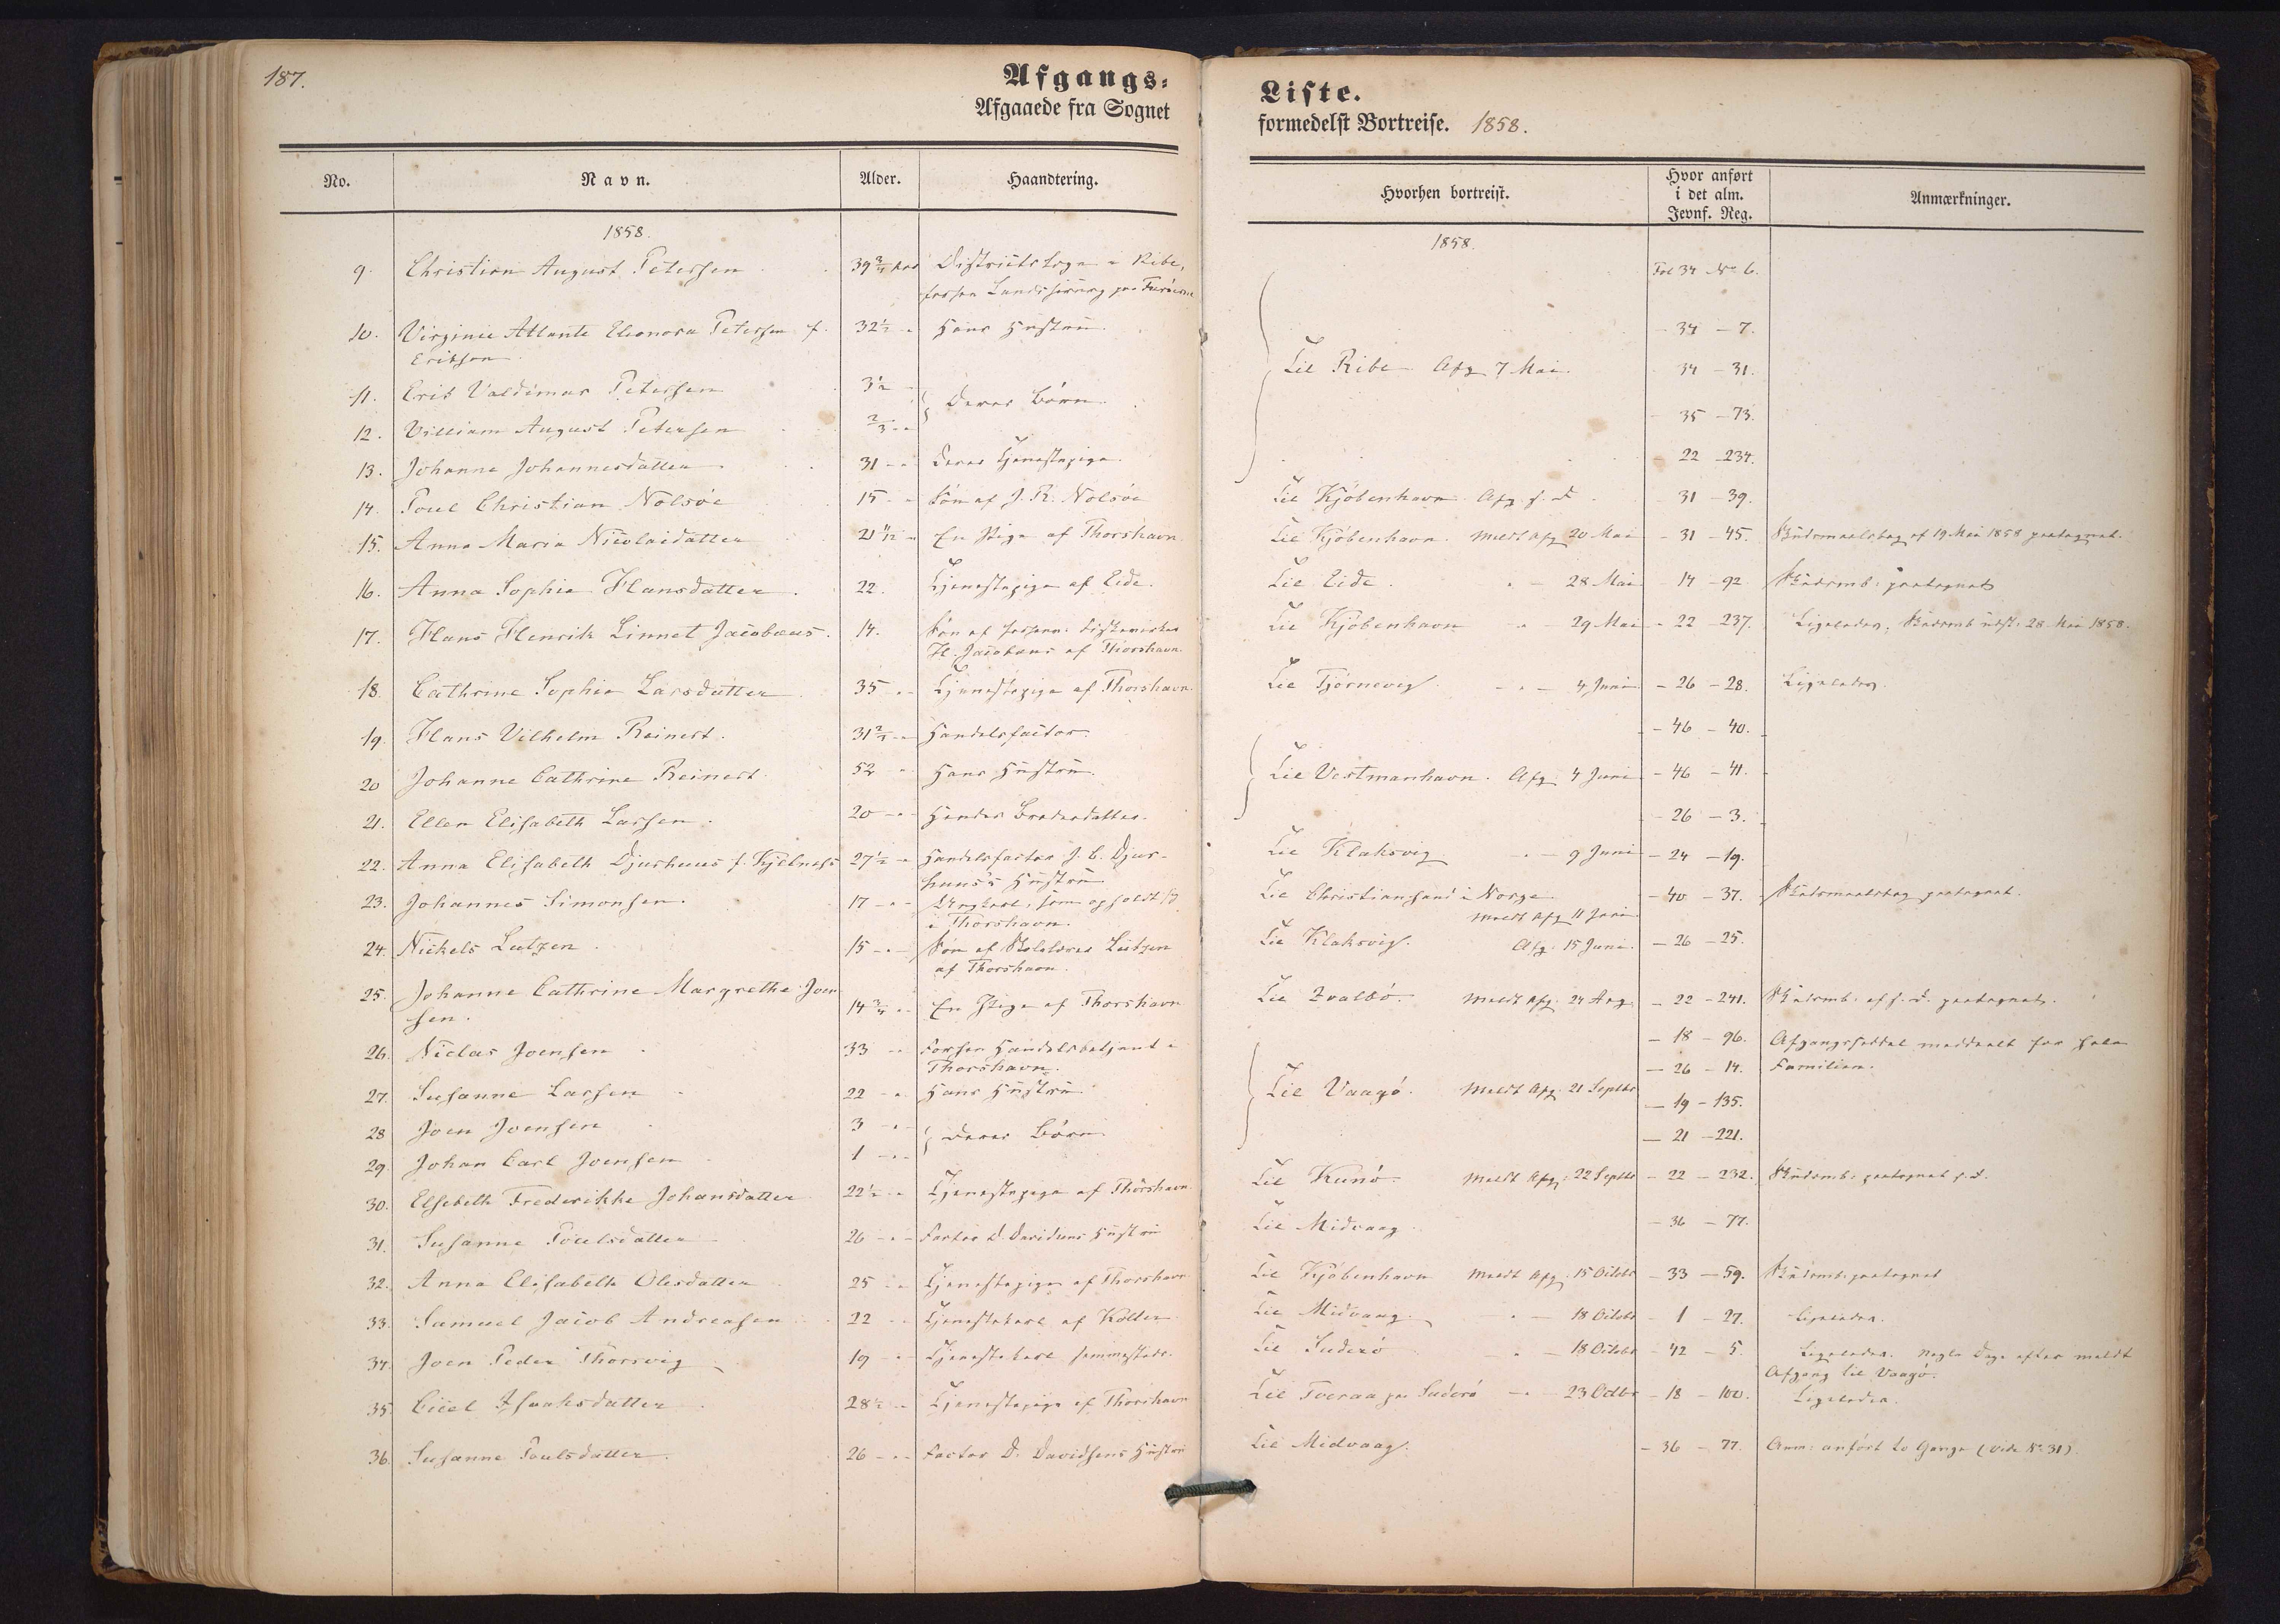 187.
Afgangs=
Afgaaede fra Sognet
No.
Navn.
Alder.
Haandtering.
1858.
9. Christian August Petersen 39 3/4 Aar Districtslæge i Ribe,
forhen Landschirurg paa Færöerne
10. Virginie Atlante Eleonora Petersen f. 32 1/2 Hans Hustru.
Eriksen
11. Erik Valdimar Petersen 3 1/2
Deres Börn
12. Villiam August Petersen 2/3
13. Johanne Johannesdatter 31 Deres Tjenestepige.
14. Poul Christian Nolsöe 15 Sön af J. R. Nolsöe
15. Anna Maria Nicolaidatter 21 11/12 En Pige af Thorshavn
16. Anna Sophia Hansdatter 22. Tjenestepige af Eide.
17. Hans Henrik Linnet Jacobæus. 14. Sön af
H. Jacobæus af Thorshavn.
18. Cathrine Sophie Larsdatter 35 Tjenestepige af Thorshavn.
19. Hans Vilhelm Reinert. 31 Handelsfactor.
20 Johanne Cathrine Reinert. 52 Hans Hustru.
21. Ellen Elisabeth Larsen. 20 Hendes Broderdatter.
22. Anna Elisabeth Djurhuus f. Kjelnæs 27 1/2 Handelsfactor J. C. Djur-
huus's Hustru
23. Johannes Simonsen. 17 Ungkarl, som opholdt sig
i Thorshavn.
24. Nickels Lutzen 15 Sön af Skolelærer Lützen
af Thorshavn.
25. Johanne Cathrine Margrethe Joen-
sen. 14 3/4 En Pige af Thorshavn
26. Niclas Joensen 33 Forhen Handelsbetjent i
Thorshavn.
27. Susanne Larsen 22 Hans Hustru
28 Joen Joensen 3
Deres Börn
29. Johan Carl Joensen 1
30. Elsebeth Frederikke Johansdatter 22 1/2 Tjenestepige af Thorshavn
31. Susanne Poulsdatter 26 Factor D. Davidsens Hustru
32. Anna Elisabeth Olesdatter 25 Tjenestepige af Thorshavn
33. Samuel Jacob Andreasen 22 Tjenestekarl af Kolter
34. Joen Peder Thorsvig 19 Tjenestekarl sammesteds.
35. Ciiel Isaaksdatter 28 1/2 Tjenestepige af Thorshavn
36. Susanne Poulsdatter. 26 Factor D. Davidsens Hustru
Liste.
formedelst Bortreise. 1858.
Hvorhen bortreist.
Hvor anført
i det alm.
Jevnf. Reg.
Anmærkninger.
1858.
Fol 34 No 6.
- 34 - 7.
Til Ribe Afg 7 Mai. 34 - 31.
- 35 - 73.
- 22 - 234.
Til Kjöbenhavn Afg. s. D. - 31 - 39.
Til Kjöbenhavn. Meldt Afg 20 Mai - 31 - 45. Skudsmaalsbog af 19 Mai 1858 paategnet.
Til Eide. 28 Mai 14 - 92 Skudsmb. paategnet
Til Kjöbenhavn 29 Mai - 22 - 237. Ligeledes, Skudsmb udst. 28 Mai 1858.
Til Tjörnevig 4 Juni - 26 - 28. Ligeledes.
- 46 - 40.
Til Vestmanhavn. Afg. 4 Juni - 46 - 41.
- 26 - 3.
Til Klaksvig 9 Juni - 24 - 19.
Til Christiansand i Norge - 40 - 37. Skudsmaalsbog paategnet.
Meldt Afg 11 Juni
Til Klaksvig. Afg. 15 Juni. - 26 - 25.
Til Qvalbö. Meldt Afg. 24 Aug. - 22 - 241. Skudsmb. af s. D. paategnet.
- 18 - 96. Afgangsseddel meddeelt for hele
- 26 - 14. Familien.
Til Vaagö. Meldt Afg. 21 Septbr
- 19 - 135.
- 21 - 221.
Til Kunö Meldt Afg. 22 Septbr - 22 - 232. Skudsmb. paategnet s. D.
Til Midvaag. - 36 - 77.
Til Kjöbenhavn Meldt Afg. 15 Octobr - 33 - 59. Skudsmb. paategnet
Til Midvaag. 18 Octobr - 1 - 27. Ligeledes.
Til Suderö 18 Octobr - 42 - 5. Ligeledes. Nogle Dage efter meldt
Afgang til Vaagö.
Til Tveraa paa Suderö 23 Octbr - 18 - 100. Ligeledes.
Til Midvaag. - 36 - 77. Anm: anfört to Gange (vide No 31)